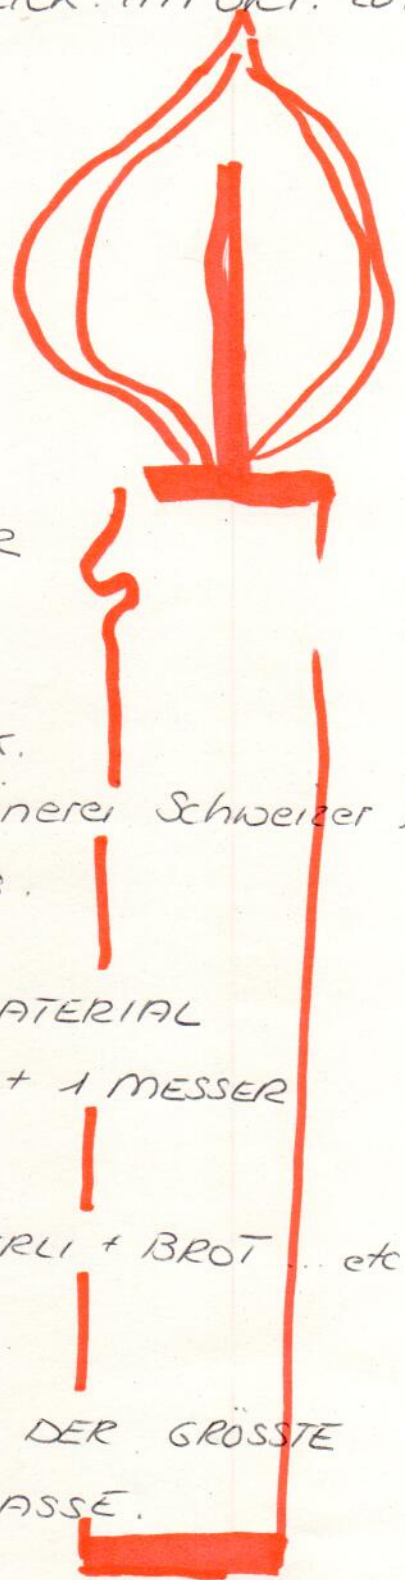 R
K.
nerei Schweizer
ATERIAL
+ 1 MESSER
ERLI + BROT ... etc
DER GRÖSSTE
ASSE.